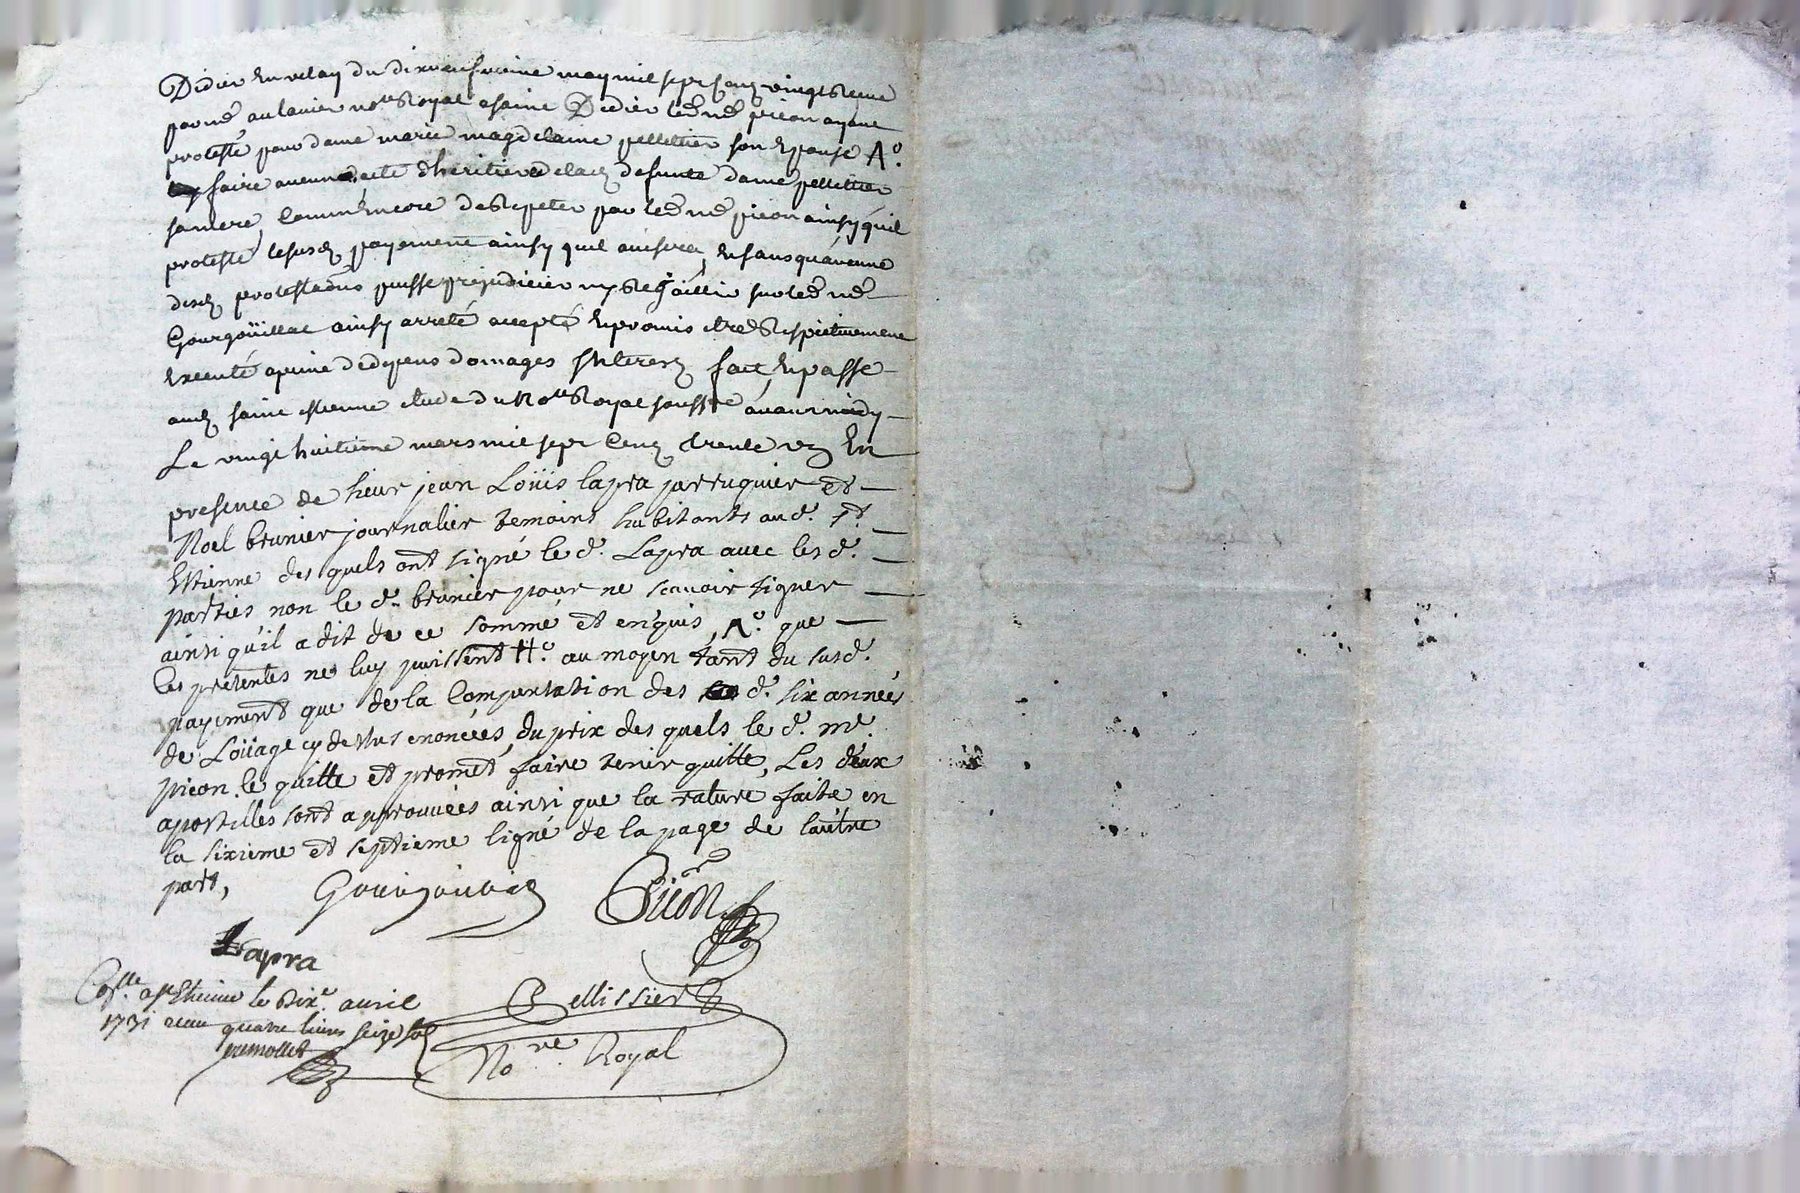 Didier en velay du dix neufvieme may mil sept cens vingt neuf
par me aulanier nore Royal a saint Didier led. me picon ayant
protesté pour dame marie magdelaine pelletier son epouse A°.
faire aucun acte d'heritiere de lad. defunte dame pelletier
sa mere, comme encore de repeter par led. me picon ainsy qu'il
proteste le susd. payement ainsy quil avisera, en sans qu'aucune
desd. protestaons puisse prejudicier ny rejaillir sur led. me
Gourgoüillat ainsy arreté accepté et promis etre respectivement
executé a peine de depens domages interets fait et passé
aud. saint etienne etude du nore Royal soussé avant midy
Le vingt huitieme mars mil sept cens trente un En
presence de sieur jean Loüis lapra perruquier et
Noel brunier journalier temoins habitants aud. st.
Etienne des quels ont signé le d. Lapra avec les d.
parties, non le d. brunier pour ne scavoir signer
ainsi qu'il a dit de ce sommé et enquis, A°. que
les presentes ne luy puissent H°. au moyen tant du susd.
payement que de la Compensation des d. six années
de Loüage cy dessus enoncées, du prix des quels le d. me.
picon le quitte et promet faire tenir quitte, Les deux
apostilles sont approuvées ainsi que la rature faite en
la sixieme et septieme ligne de la page de l'autre
part,
Picon
Lapra
Collé a st Etienne le dixe avril
1731 receu quatre livres seize sols
Pellissier
Nore Royal